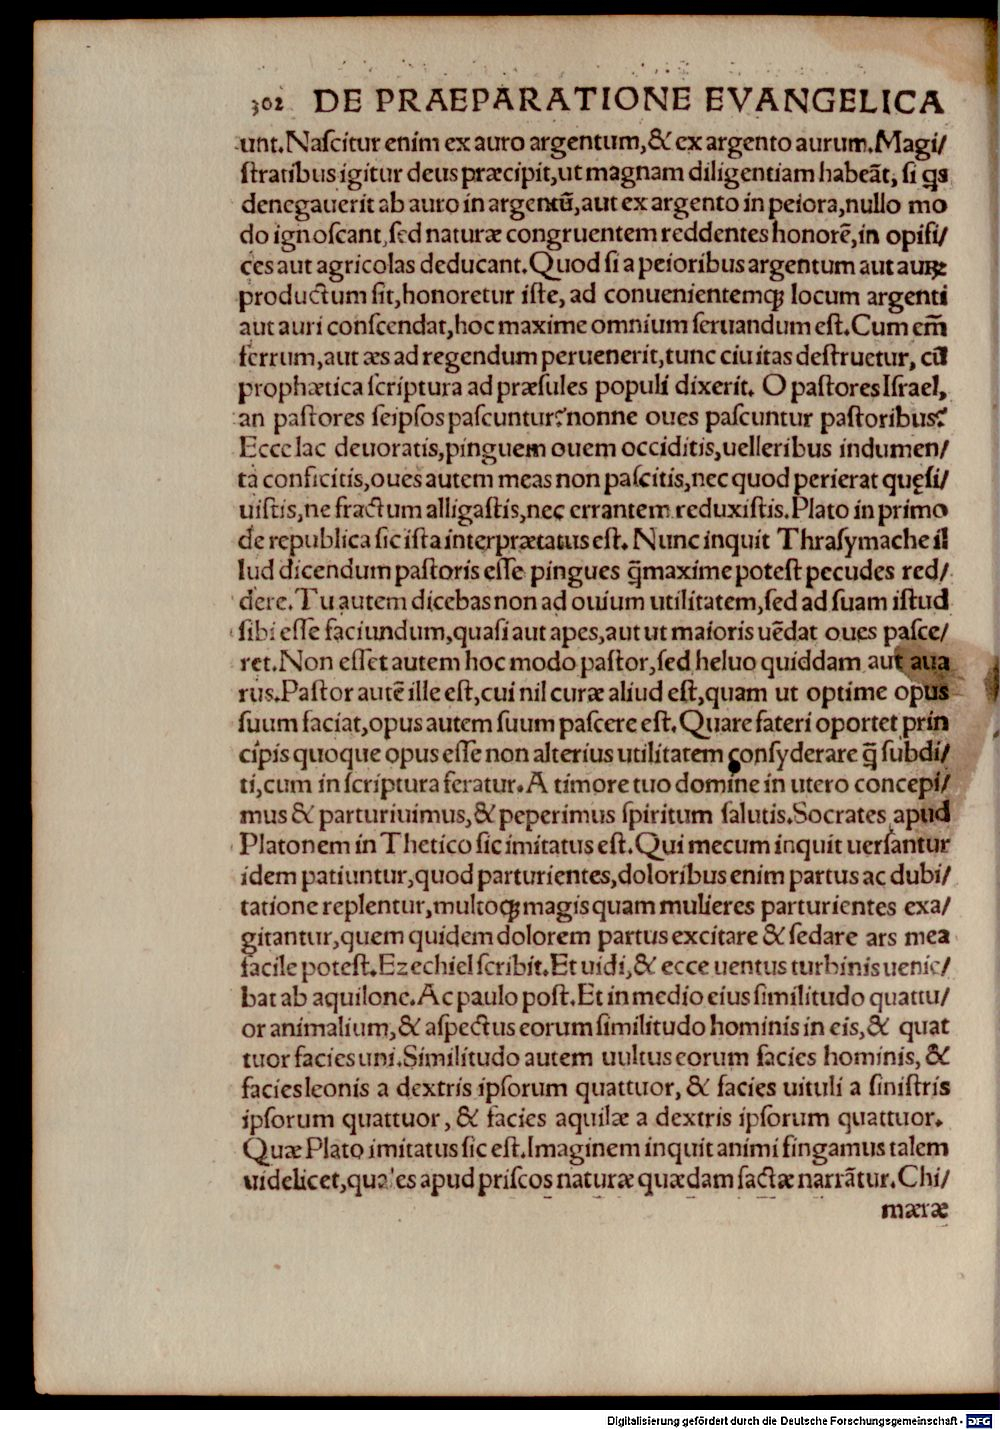 302 DE PRAEPARATIONE EVANGELICA
unt.Naſcitur enim ex auro argentum,& ex argento aurum.Magi/
ſtratibus igitur deus præcipit,ut magnam diligentiam habeāt, ſi q̄s
denegauerit ab auro in argentū,aut ex argento in peiora,nullo mo
do ignoſcant,ſed naturæ congruentem reddentes honorē,in opifi/
ces aut agricolas deducant.Quod ſi a peioribus argentum aut auꝝ
productum ſit,honoretur iſte, ad conuenientemqꝫ locum argenti
aut auri conſcendat,hoc maxime omnium ſeruandum eſt.Cum em̄
ferrum,aut æs ad regendum peruenerit,tunc ciuitas deſtruetur, cū
prophætica ſcriptura ad præſules populi dixerit. O paſtores Iſrael,
an paſtores ſeipſos paſcuntur?nonne oues paſcuntur paſtoribus?
Ecce lac deuoratis,pinguem ouem occiditis,uelleribus indumen/
ta conficitis,oues autem meas non paſcitis,nec quod perierat quęſi/
uiſtis,ne fractum alligaſtis,nec errantem reduxiſtis.Plato in primo
de republica ſic iſta interprætatus eſt. Nunc inquit Thraſymache il
lud dicendum paſtoris eſſe pingues q̄maxime poteſt pecudes red/
dere.Tu autem dicebas non ad ouium utilitatem,ſed ad ſuam iſtud
ſibi eſſe faciundum,quaſi aut apes,aut ut maioris uēdat oues paſce/
ret.Non eſſet autem hoc modo paſtor,ſed heluo quiddam aut aua
rus.Paſtor autē ille eſt,cui nil curæ aliud eſt,quam ut optime opus
ſuum faciat,opus autem ſuum paſcere eſt.Quare fateri oportet prin
cipis quoque opus eſſe non alterius utilitatem conſyderare q̄ ſubdi/
ti,cum in ſcriptura feratur.A timore tuo domine in utero concepi/
mus & parturiuimus,& peperimus ſpiritum ſalutis.Socrates apud
Platonem in Thetico ſic imitatus eſt.Qui mecum inquit uerſantur
idem patiuntur,quod parturientes,doloribus enim partus ac dubi/
tatione replentur,multoqꝫ magis quam mulieres parturientes exa/
gitantur,quem quidem dolorem partus excitare & ſedare ars mea
facile poteſt.Ezechiel ſcribit.Et uidi,& ecce uentus turbinis uenie/
bat ab aquilone.Ac paulo poſt.Et in medio eius ſimilitudo quattu/
or animalium,& aſpectus eorum ſimilitudo hominis in eis,& quat
tuor facies uni.Similitudo autem uultus eorum facies hominis, &
facies leonis a dextris ipſorum quattuor, & facies uituli a ſiniſtris
ipſorum quattuor, & facies aquilæ a dextris ipſorum quattuor.
Quæ Plato imitatus ſic eſt.Imaginem inquit animi fingamus talem
uidelicet,quales apud priſcos naturæ quædam factæ narrātur.Chi/
mæræ
Digitalisierung gefördert durch die Deutsche Forschungsgemeinschaft - DFG